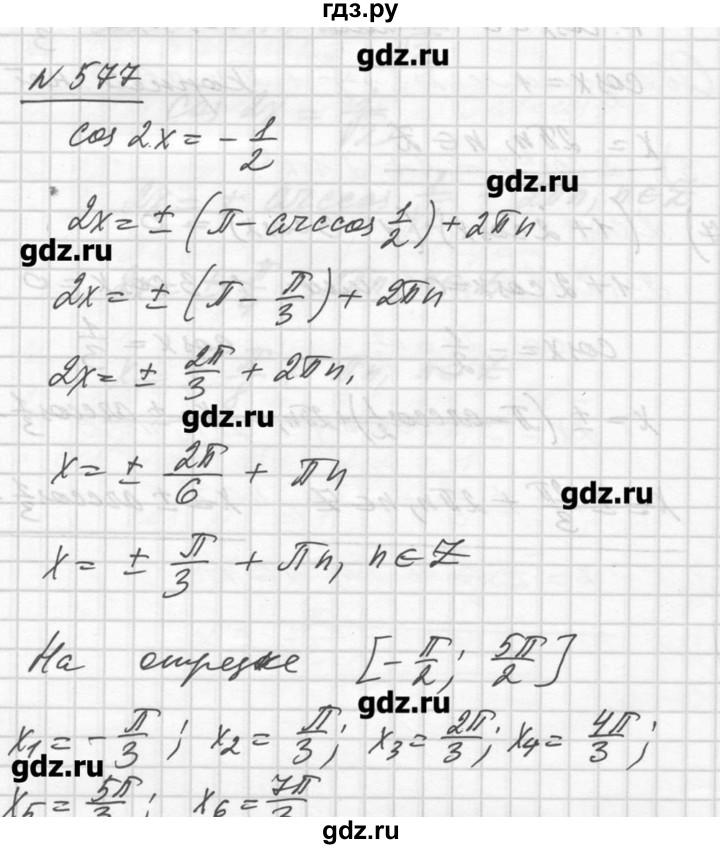 гдз.ру
gdz.ru
№ 577
cos 2x = - 1/2
gdz.ru
2x = ± (π - arccos 1/2) + 2πn
gdz.ru
2x = ± (π - π/3) + 2πn
2x = ± 2π/3 + 2πn,
gdz.ru
x = ± 2π/6 + πn
gdz.ru
x = ± π/3 + πn, n ∈ Z
На отрезке [-π/2; 5π/2]
gdz.ru
x₁ = - π/3; x₂ = π/3; x₃ = 2π/3; x₄ = 4π/3;
gdz.ru
x₅ = 5π/3; x₆ = 7π/3
gdz.ru